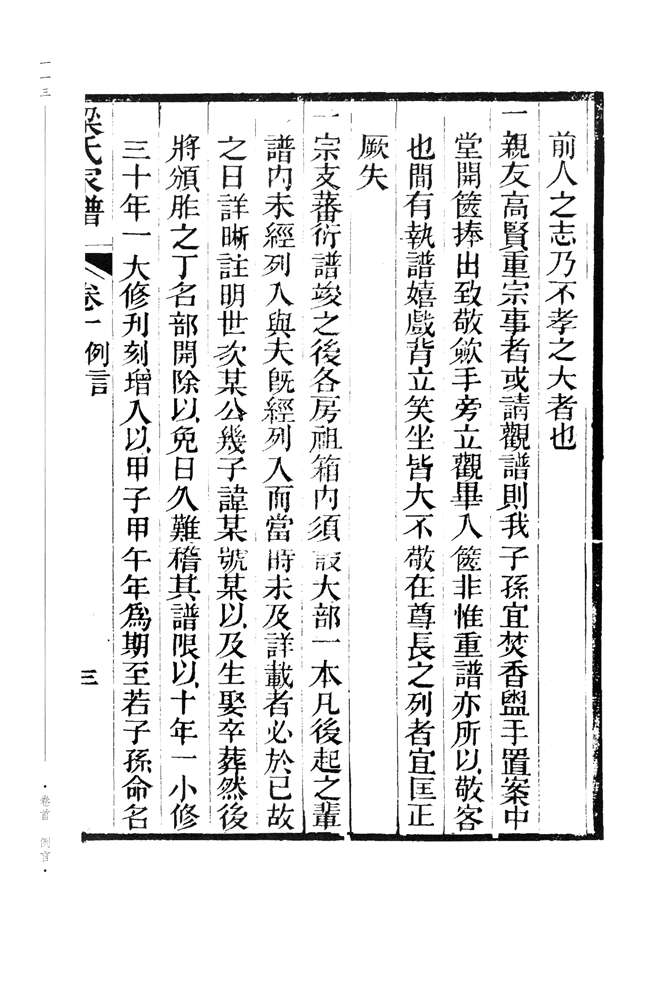 前人之志乃不孝之大者也
一親友高賢重宗事者或請觀譜則我子孫宜焚香盥手置案中
堂開篋捧出致敬歛手旁立觀畢入篋非惟重譜亦所以敬客
也間有執譜嬉戲背立笑坐皆大不敬在尊長之列者宜匡正
厥失
一宗支蕃衍譜竣之後各房祖箱內須設大部一本凡後起之輩
譜內未經列入與夫旣經列入而當時未及詳載者必於已故
之日詳晰註明世次某公幾子諱某號某以及生娶卒葬然後
將頒胙之丁名部開除以免日久難稽其譜限以十年一小修
三十年一大修刋刻增入以甲子甲午年爲期至若子孫命名
梁氏家譜 卷一 例言 三
一一三
·卷首 例言·